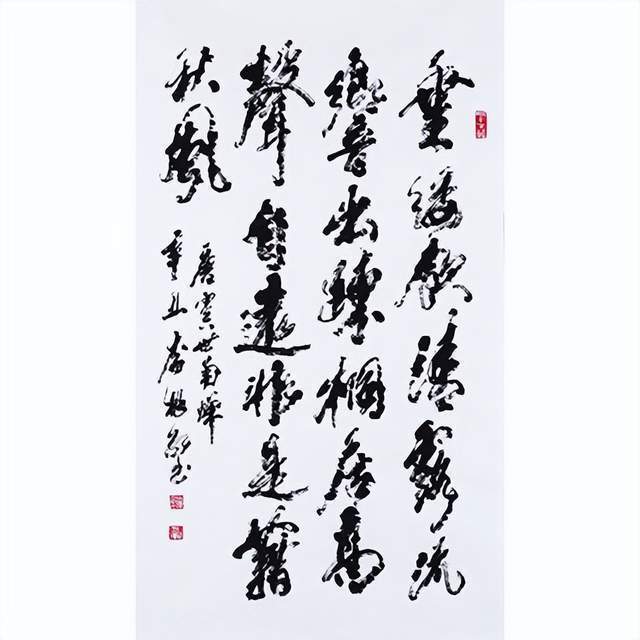 垂緌飲清露流
響出疎桐居高
聲自遠非是藉
秋風
唐虞世南蟬
辛丑 书